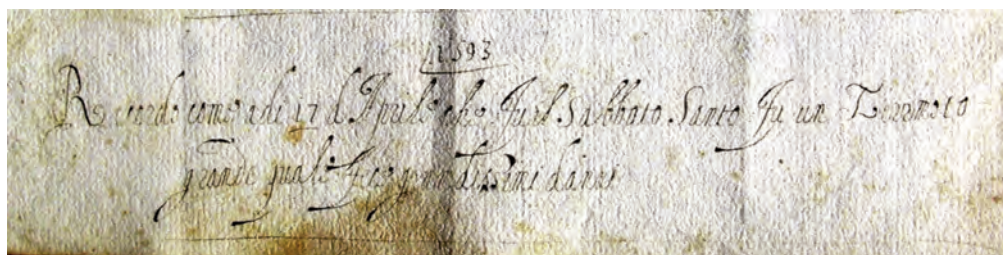 1593
Ricordo come adi 17 d Aprile che fu il Sabbato Santo fu un Terremoto
grande quale fece grandissimi danni